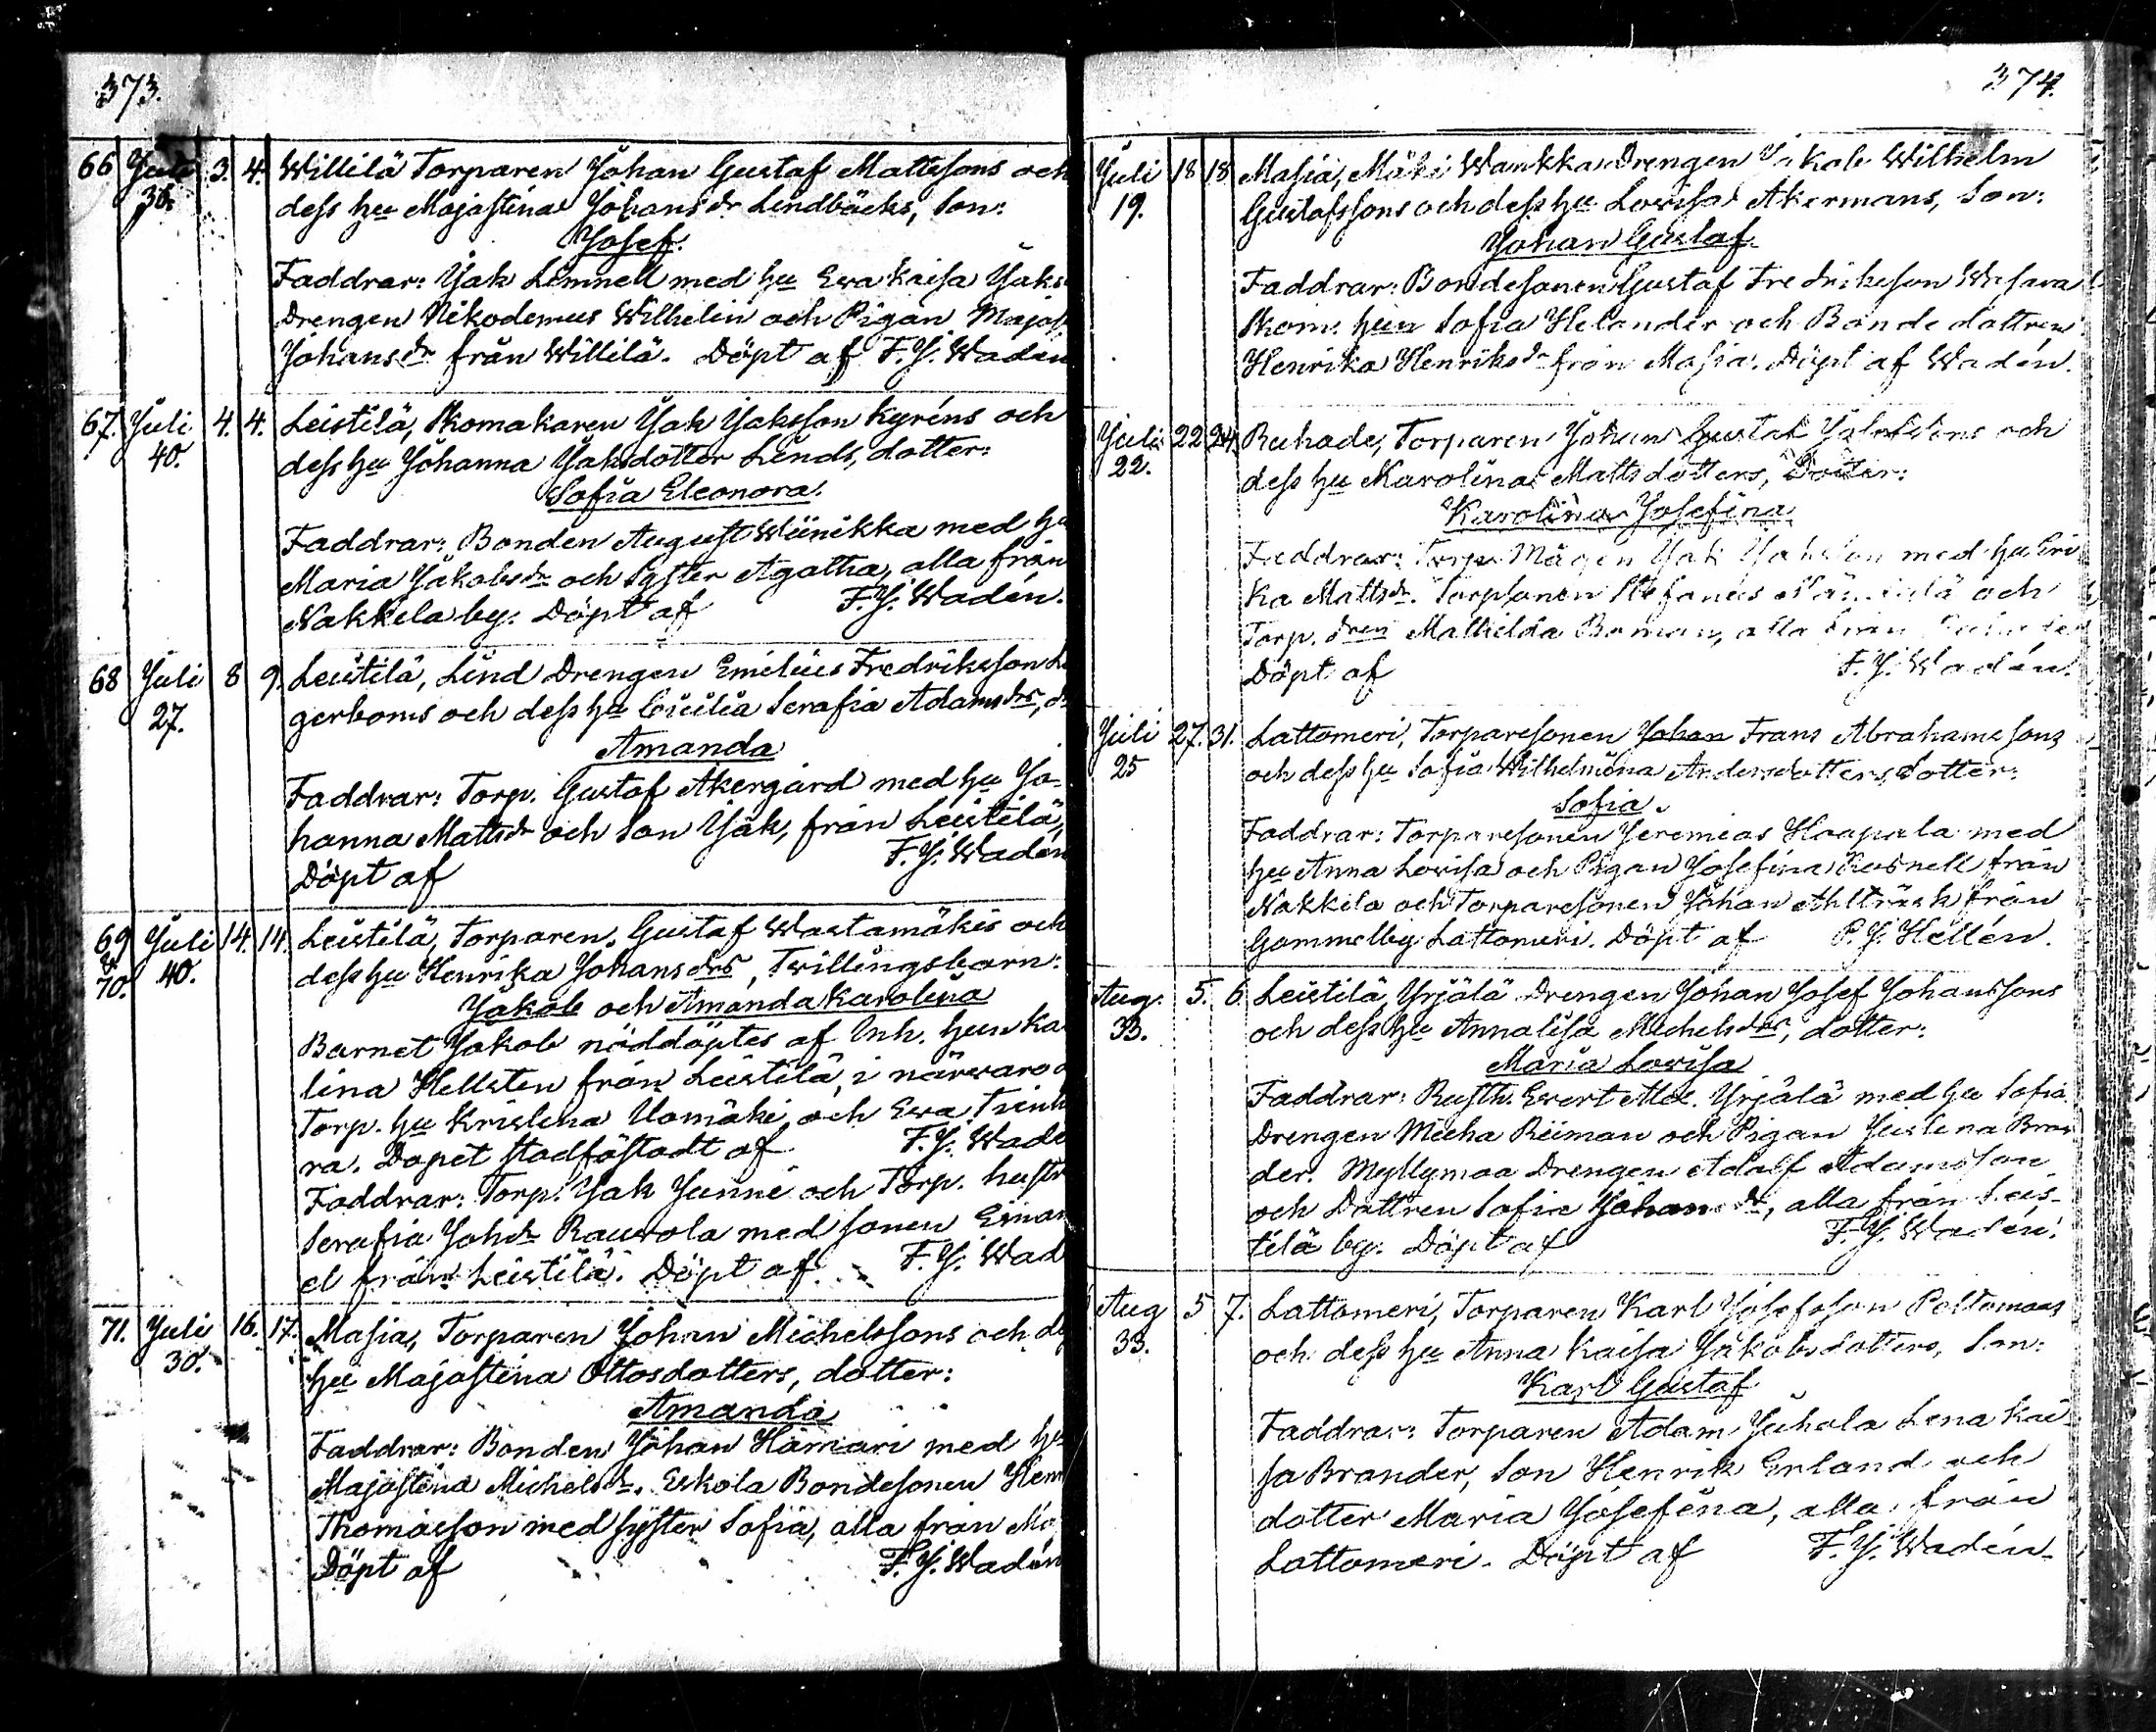 373.
66 Juli 3. 4. Willilä Torparen Johan Gustaf Mattssons och
30. dess hu Majastina Johansdr Lindbäcks, Son:
Josef.
Faddrar: Jak Limnell med hu Ewa Kaisa Jaks
Drengen Nikodemus Wilhelin och Pigan Majas
Johansdr från Willilä. Döpt af F. J. Wadén
67. Juli 4. 4. Leistilä, Skomakaren Jak Jaksson Kyréns och
40. dess hu Johanna Jaksdotter Linds, dotter:
Sofia Eleonora.
Faddrar: Bonden August Wiinikka med hu
Maria Jakobsdr och Syster Agatha, alla från
Nakkila by. Döpt af F. J. Wadén.
68 Juli 8 9. Leistilä, Lind Drengen Emilius Fredriksson Lä
27. gerboms och dess hu Cicilia Serafia Adamsdrs, dr
Amanda
Faddrar: Torp. Gustaf Åkergård med hu Jo-
hanna Mattsdr och Son Jak, från Leistilä,
Döpt af F. J. Wadén
69 Juli 14. 14. Leistilä, Torparen Gustaf Wastamäkis och
& 70. 40. dess hu Henrika Johansdrs, Twillingsbarn:
Jakob och Amanda Karolina
Barnet Jakob nöddöptes af Inh. hun Ka
lina Hellsten från Leistilä, i närwaro a
Torp. hu Kristina Uomäki och Ewa Tiink
ra. Dopet stadfästadt af F. J. Wade
Faddrar: Torp. Jak Junni och Torp. hustr
Serafia Johdr Rauwola med sonen Eman
el från Leistilä. Döpt af F. J. Wad
71. Juli 16. 17. Masia, Torparen Johan Michelssons och de
30. hu Majastina Ottosdotters, dotter:
Amanda
Faddrar: Bonden Johan Harriari med hu
Majastina Michelsdr. Eskola Bondesonen Hen
Thomasson med syster Sofia, alla från Ma
Döpt af F. J. Wadén
374.
Juli 18 18 Masia, Mäki Wankka Drengen Jakob Wilhelm
19. Gustafssons och dess hu Lowisa Åkermans, Son:
Johan Gustaf.
Faddrar: Bondesonen Gustaf Fredriksson
Skom. hun Sofia Helander och Bonde dottren
Henrika Henriksdr från Masia. Döpt af Wadén.
Juli 22 24. Ruhade, Torparen Johan Gustaf och
22. dess hu Karolina Matts dotters, Dotter:
Karolina Josefina
Faddrar: Torp. Mågen Jak Jaksson med hu Eri
ka Mattsdr. Torpsonen Stefanus och
Torp. dren Mathilda Boman, alla från
Döpt af F. J. Wadén.
Juli 27. 31. Lattomeri, Torparesonen Johan Frans Abrahamssons
25 och dess hu Sofia Wilhelmina Andersdotters, Dotter:
Sofia.
Faddrar: Torparesonen Jeremias Haapala med
hu Anna Lowisa och Pigan Josefina Rosnell från
Nakkila och Torparesonen Johan Ahlträsk från
Gammelby Lattomeri. Döpt af P. J. Hellén.
Aug. 5. 6. Leistilä, Yrjälä Drengen Johan Josef Johanssons
33. och dess hu Annalisa Michelsdrs, dotter:
Maria Lowisa
Faddrar: Rusth. Ewert Alex. Yrjälä med hu Sofia.
Drengen Micha Riiman och Pigan Justina Bran
der. Myllymaa Drengen Adolf Adamsson
och Dottren Sofia Johansdr, alla från Leis-
tilä by. Döpt af F. J. Wadén.
Aug 5 7. Lattomeri, Torparen Karl Josefsson Peltomaas
33. och dess hu Anna Kaisa Jakobsdotters, Son:
Karl Gustaf
Faddrar: Torparen Adam Juhola Lena Kai
sa Brander, Son Henrik Erland och
dotter Maria Josefina, alla från
Lattomeri. Döpt af F. J. Wadén.